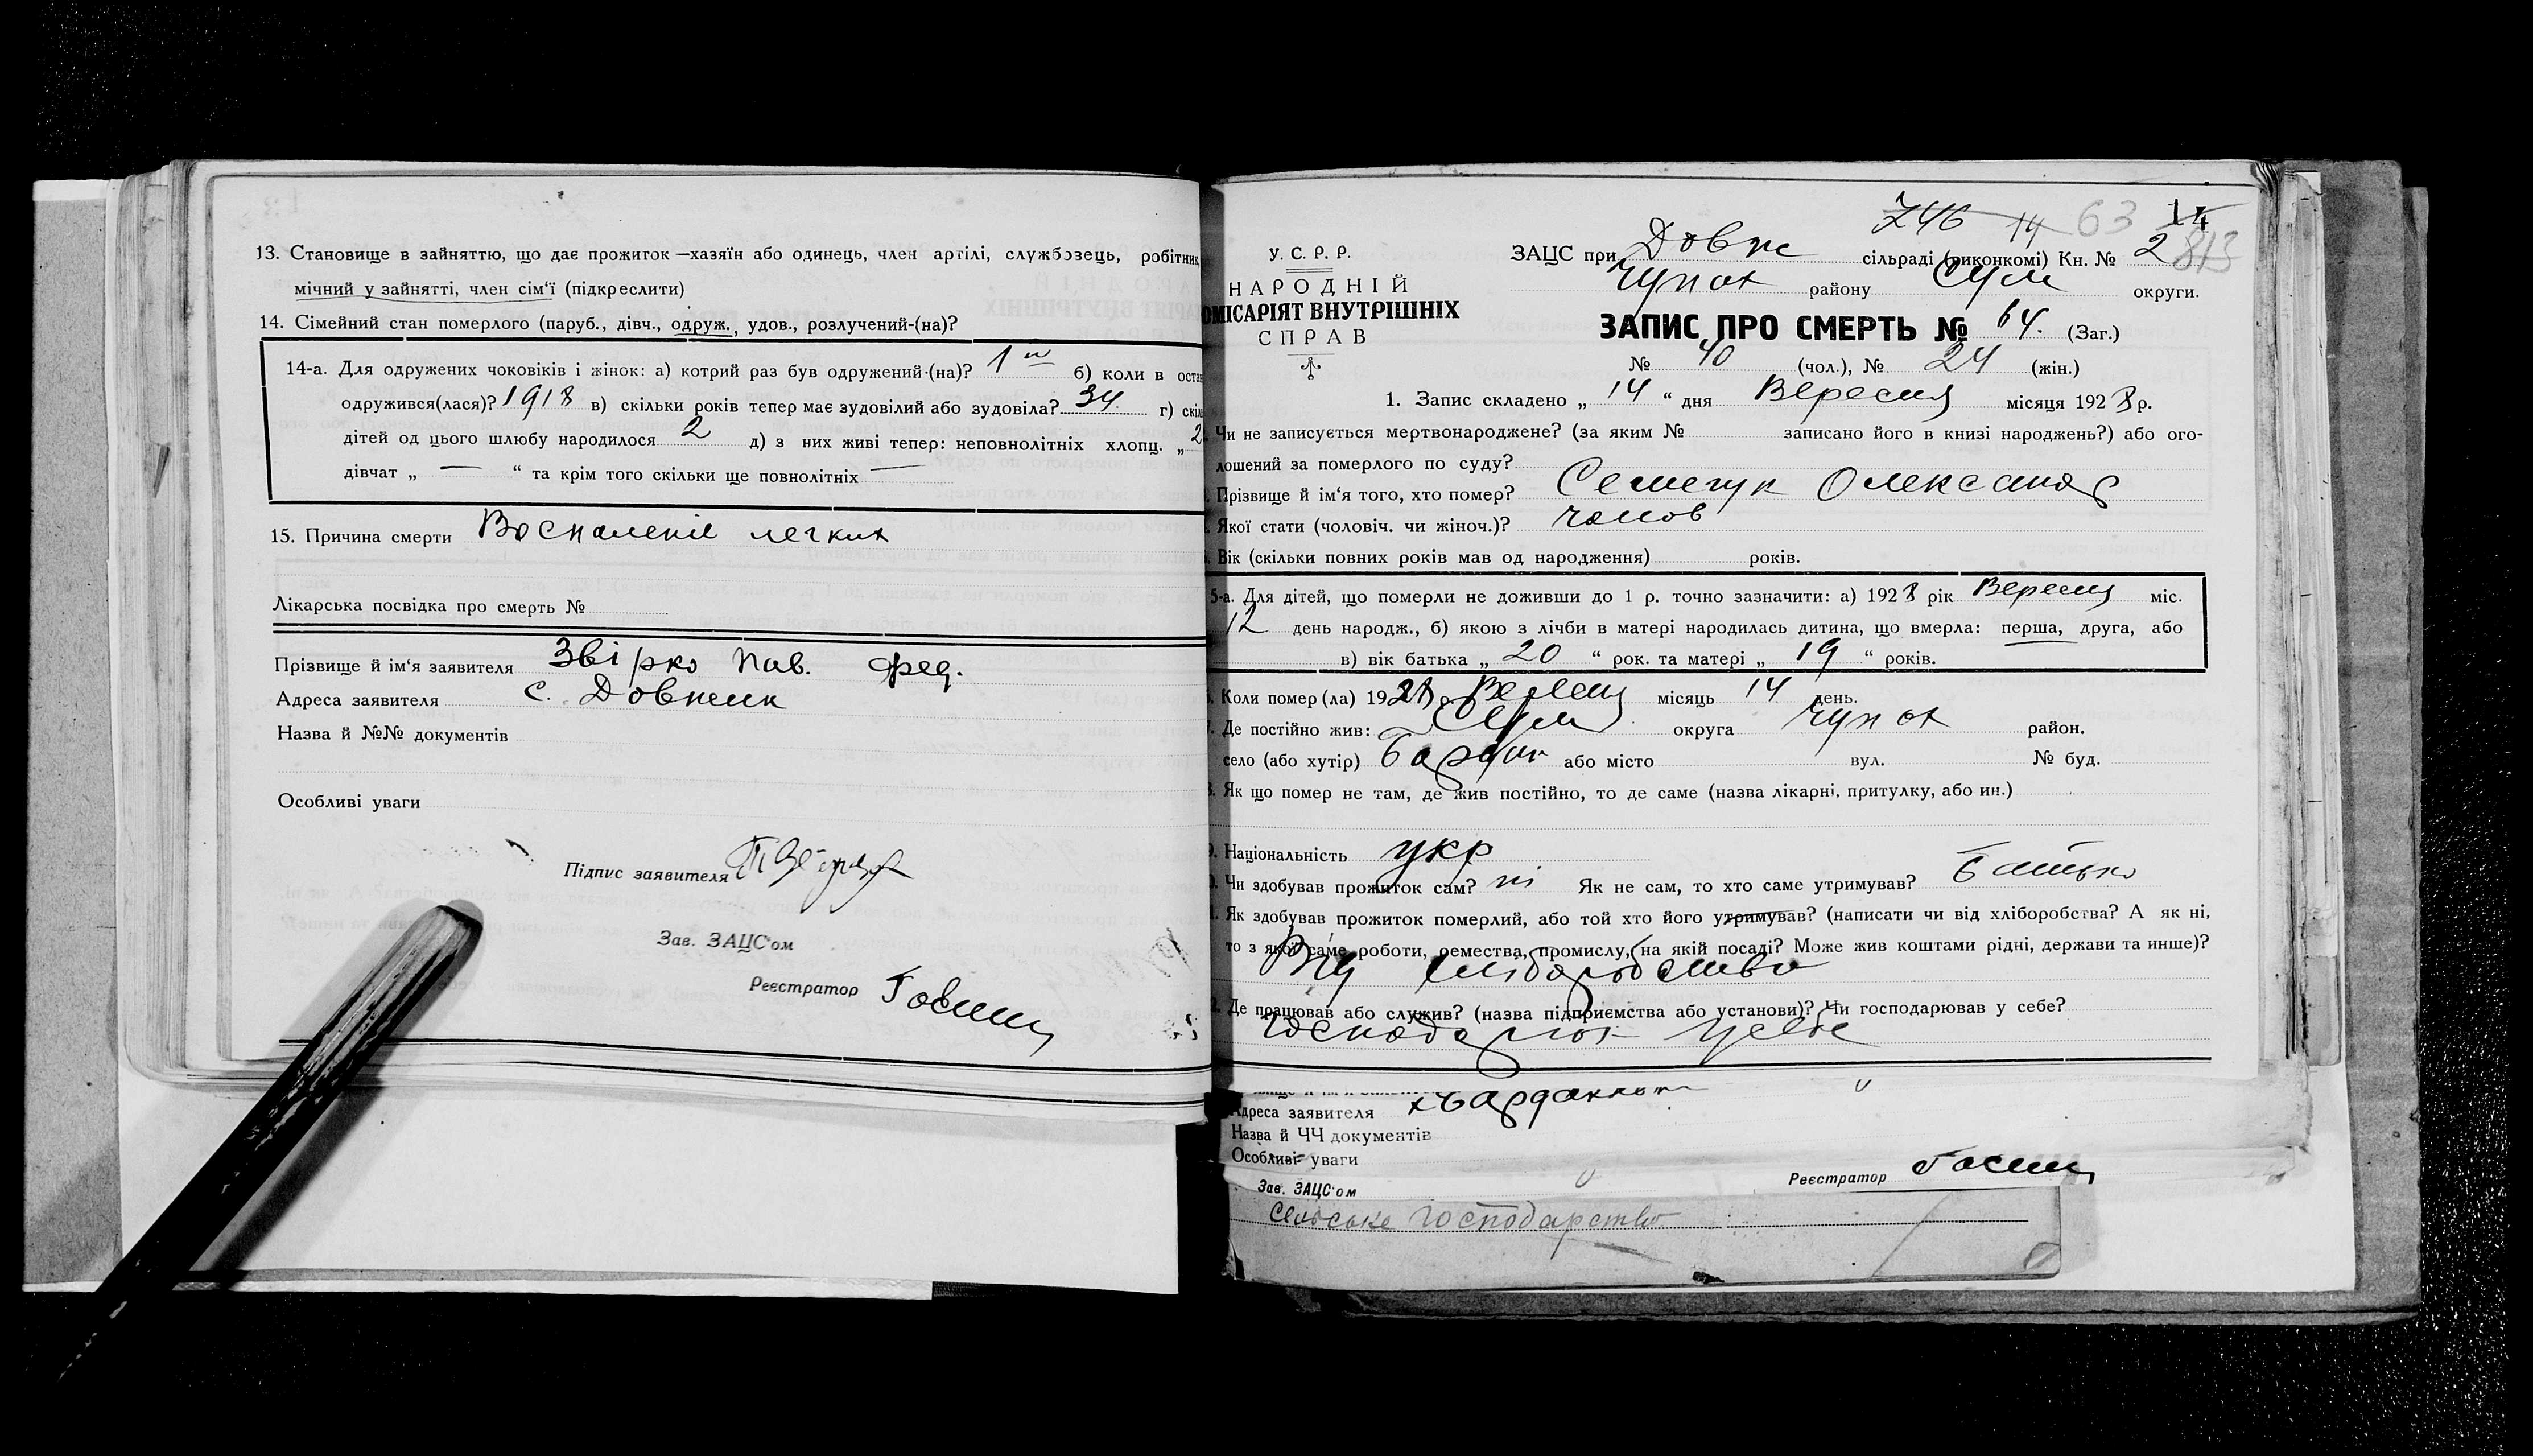 13. Становище в зайняттю, що дає прожиток —хазяїн або одинець, член артілі, службовець, робітник,
мічний у зайнятті, член сім‘ї (підкреслити)
14. Сімейний стан померлого (паруб., дівч., одруж., удов., розлучений-(на)?
14-а. Для одружених чоковіків і жінок: а) котрий раз був одружений-(на)? 1 б) коли в оста
одружився(лася)? 1918 в) скільки років тепер має зудовілий або зудовіла? 34 г) скіл
дітей од цього шлюбу народилося 2 д) з них живі тепер: неповнолітніх хлопц. „ 2
дівчат „ — “ та крім того скільки ще повнолітніх —
15. Причина смерти Воспаленіе легких
Лікарська посвідка про смерть №
Прізвище й ім‘я заявителя Звірко Пав. Фед.
Адреса заявителя с.
Назва й №№ документів
Особливі уваги
Підпис заявителя
Зав. ЗАЦС‘ом
Реєстратор
746 14 63 14
813
У. С. Р. Р.
НАРОДНІЙ
ОМІСАРІЯТ ВНУТРІШНІХ
СПРАВ
ЗАЦС при Довж сільраді (риконкомі) Кн. № 2
Чупах району Сум округи.
ЗАПИС ПРО СМЕРТЬ № 64. (Заг.)
№ 40 (чол.), № 24 (жін.)
1. Запис складено „ 14 “ дня Вересня місяця 1928 р.
Чи не записується мертвонароджене? (за яким № записано його в книзі народжень?) або ого-
лошений за померлого по суду?
Прізвище й ім‘я того, хто помер? Олександр
Якої стати (чоловіч. чи жіноч.)? чолов
Вік (скільки повних років мав од народження) років.
5-а. Для дітей, що померли не доживши до 1 р. точно зазначити: а) 1928 рік Вересня міс.
12 день народж., б) якою з лічби в матері народилась дитина, що вмерла: перша, друга, або
в) вік батька „ 20 “ рок. та матері „ 19 “ років.
Коли помер (ла) 1928 р. Вересня місяць 14 день.
Де постійно жив: Сум округа Чупах район.
село (або хутір) або місто вул. № буд.
Як що помер не там, де жив постійно, то де саме (назва лікарні, притулку, або ин.)
Національність укр
Чи здобував прожиток сам? ні Як не сам, то хто саме утримував? Батько
Як здобував прожиток померлий, або той хто його утримував? (написати чи від хліборобства? А як ні,
то з якої саме роботи, ремества, промислу, на якій посаді? Може жив коштами рідні, держави та инше)?
Від хліборобства
Де працював або служив? (назва підприємства або установи)? Чи господарював у себе?
у себе
Адреса заявителя
Назва й ЧЧ документів
Особливі уваги
Зав. ЗАЦС‘ом
Реєстратор
Сельське господарство